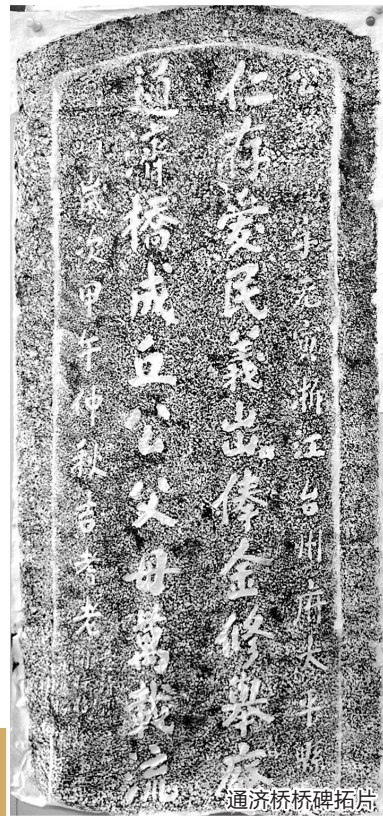 公 元寅浙江台州府太平縣
仁存愛民義出俸金修舉廢
通濟橋成丘公父母萬載流
歲次甲午仲秋吉耆老
通济桥桥碑拓片